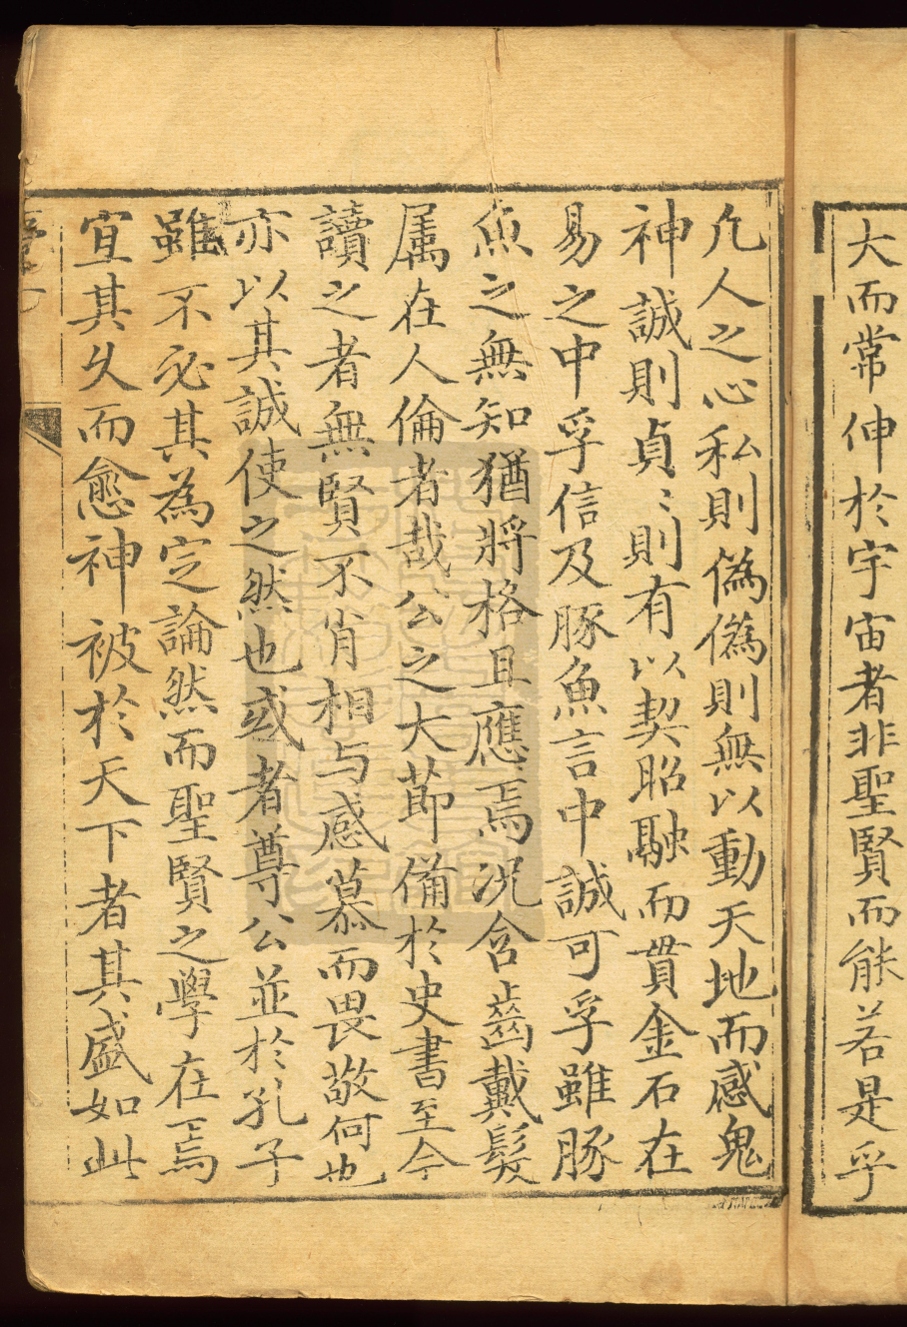 大而常伸於宇宙者非聖賢而能若是乎
凡人之心私則偽偽則無以動天地而感鬼
神誠則貞〻則有以契昭融而貫金石在
易之中孚信及豚魚言中誠可孚雖豚
魚之無知猶將格且應焉况含齒戴髮
属在人倫者哉公之大莭備於史書至今
讀之者無賢不肖相与感慕而畏敬何也
亦以其誠使之然也或者尊公並於孔子
雖不必其為定論然而聖賢之學在焉
宜其久而愈神被於天下者其盛如此